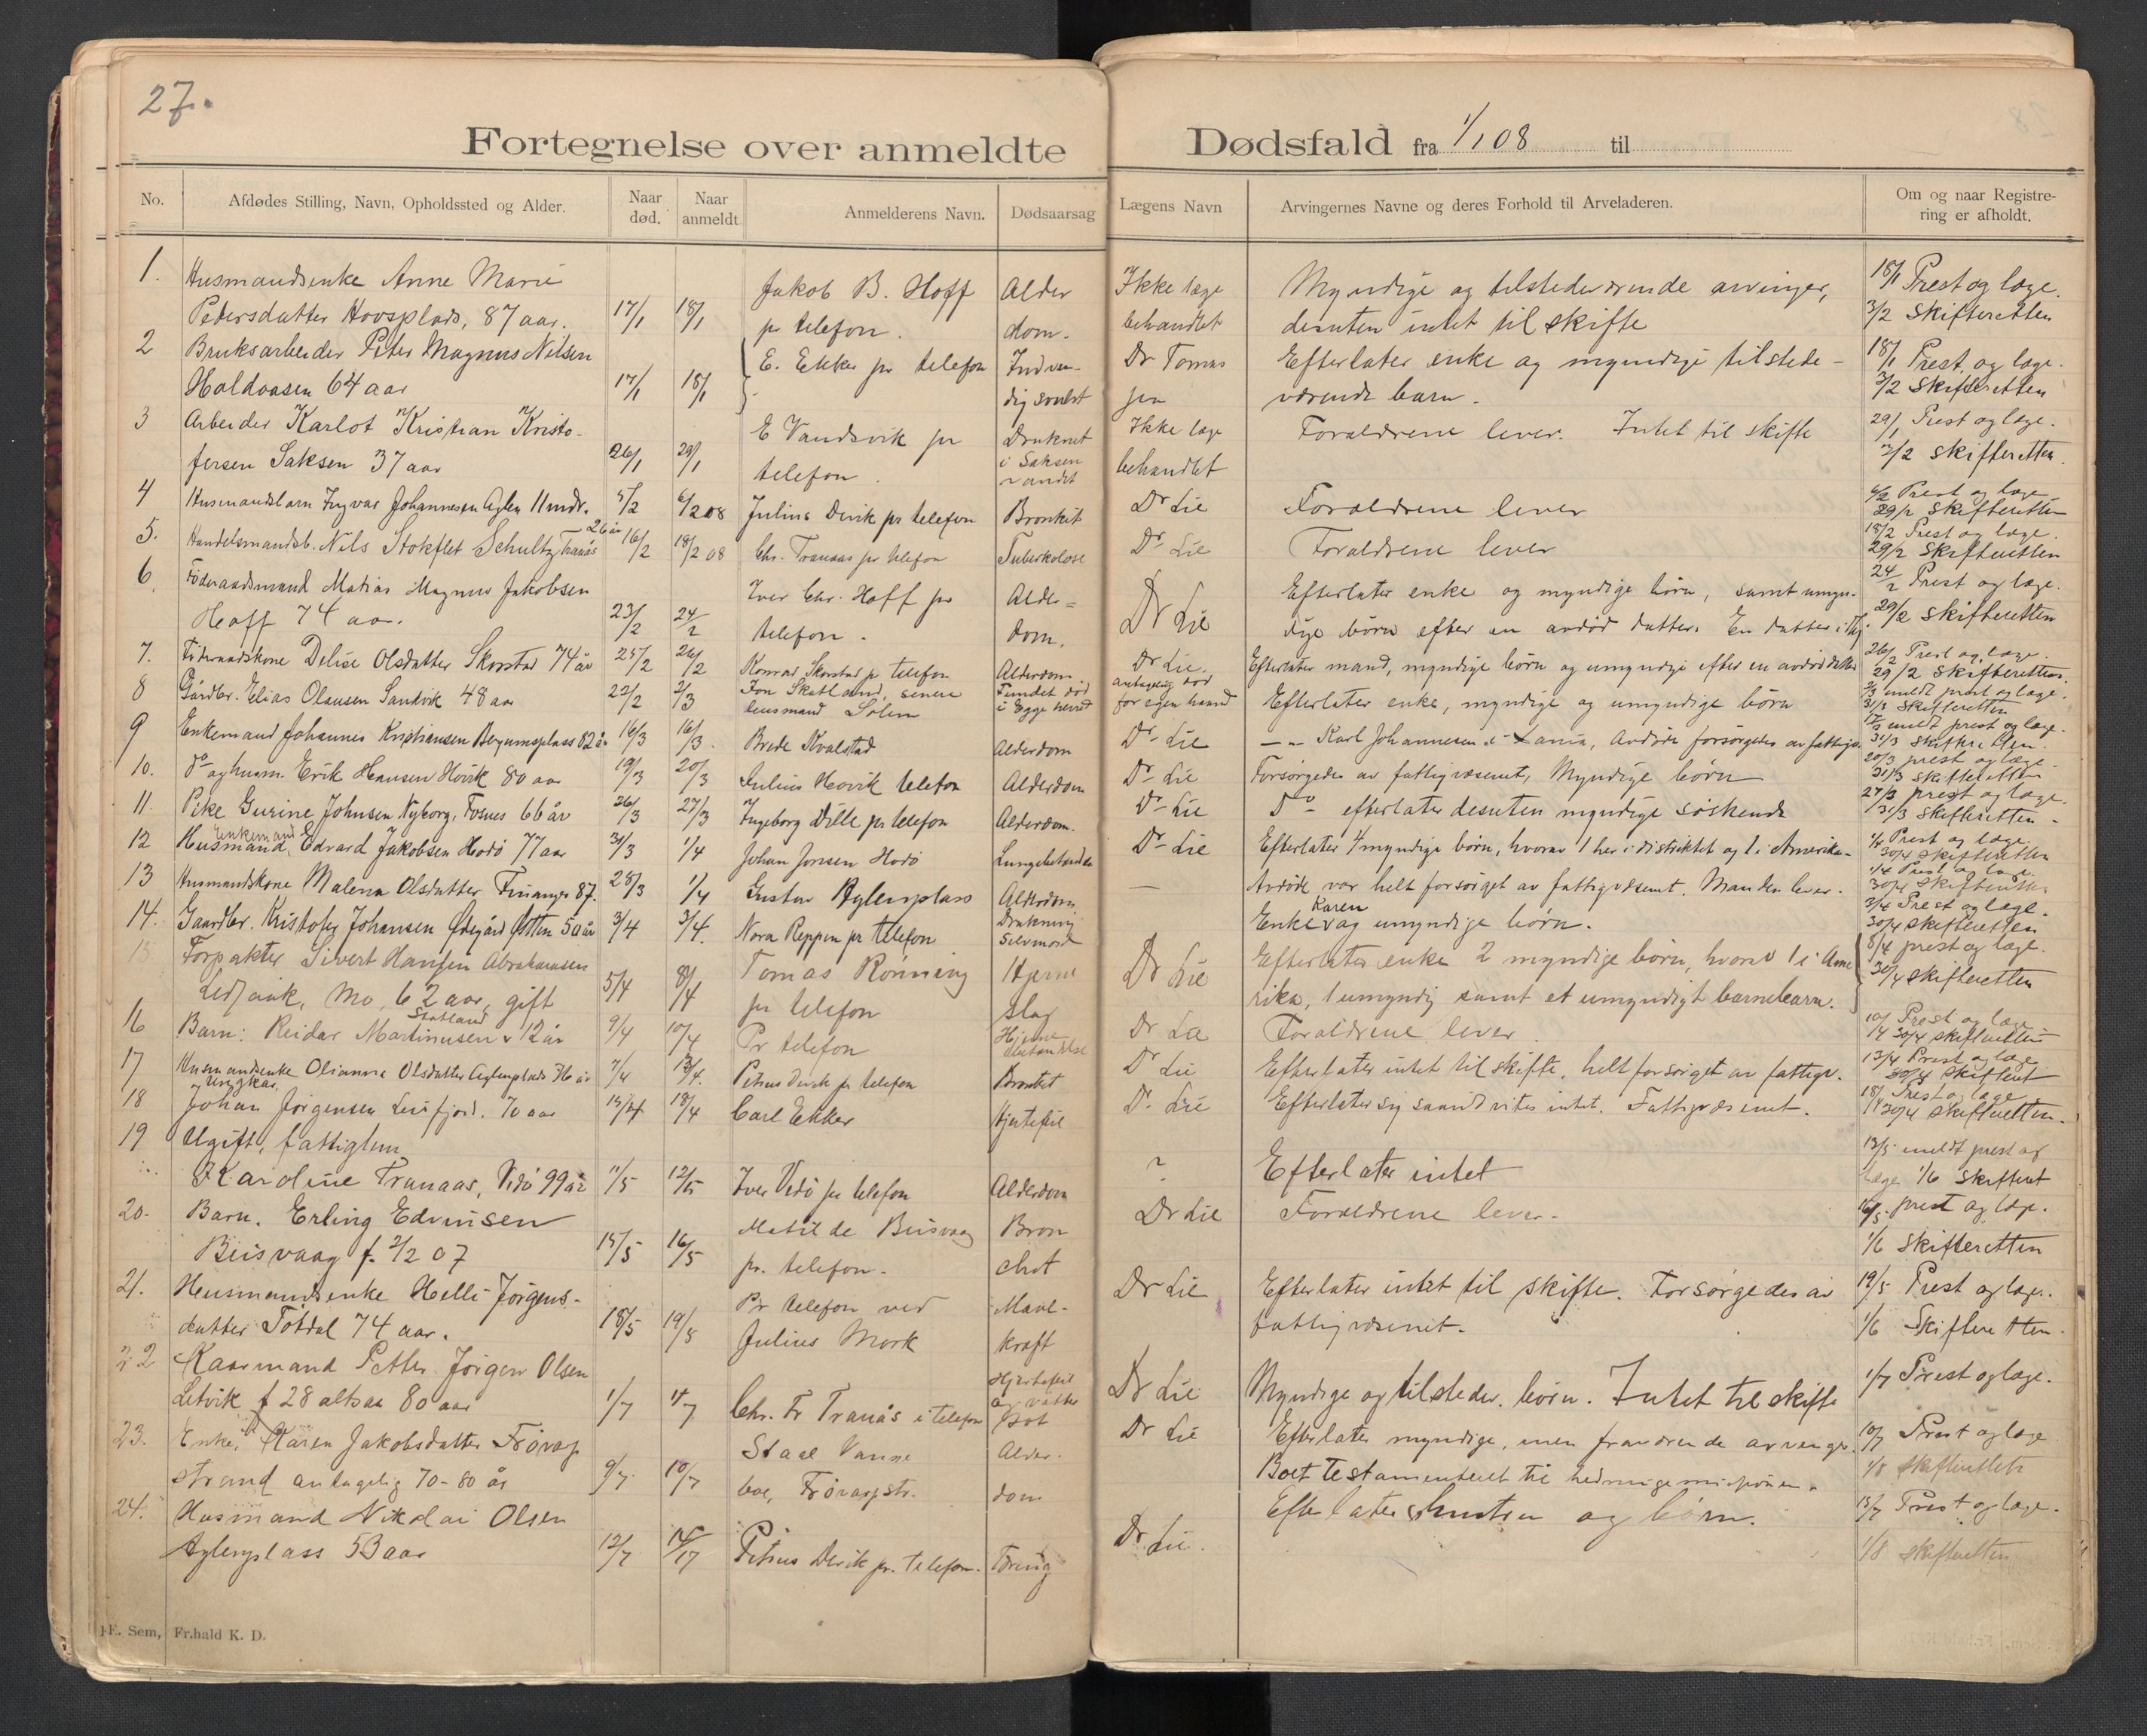 27.
Fortegnelse over anmeldte Dødsfald fra 1/1 08 til
No. Afdødes Stilling, Navn, Opholdssted og Alder. Naar død. Naar anmeldt Anmelderens Navn. Dødsaarsag Lægens Navn Arvingernes Navne og deres Forhold til Arveladeren. Om og naar Registrering er afholdt.
1. Husmandsenke Anne Marie Jakob B. Hoff Alder Ikke læge Myndige og tilstedeværende arvinger, 18/1 Prest og læge.
Pedersdatter Hovsplads, 87 aar. 17/1 18/1 pr telefon. dom. behandlet desuten intet til skifte 3/2 Skifteretten
2 Bruksarbeider Peter Magnus Nilsen E. Ekker pr telefon Indven- Dr Tomas Efterlater enke og myndige tilstede- 18/1 Prest og læge.
Haldaasen 64 aar 17/1 18/1 dig svulst sen værende barn. 3/2 Skifteretten
3 Arbeider Karlot Kristian Kristo- E Vandsvik pr Druknet Ikke læge Foraldrene lever. Intet til skifte 29/1 Prest og læge.
fersen Saksen 37 aar 26/1 29/1 telefon. i Saksen vandet behandlet 3/2 skifteretten.
4 Husmandsbarn Ingvar Johannesen Aglen 11 mdr. 5/2 6/2 08 Julius Devik pr telefon Bronkit Dr Lie Foraldrene lever 6/2 Prest og læge
29/2 Skifteretten
5. Handelsmandsb. Nils Stokflet Schultz Tranås 26 år 16/2 18/2 08 Chr. Tranaas pr telefon Tuberkolose Dr Lie Foraldrene lever 18/2 Prest og læge.
29/2 Skifteretten
6. Føderaadsmand Matias Magnus Jakobsen Iver Chr. Hoff pr Alder= Dr Lie Efterlater enke og myndige børn, samt umyn- 24/2 Prest og læge.
Hoff 74 aar. 23/2 24/2 telefon. dom. dige børn efter en avdød datter. En datter i 29/2 Skifteretten
7. Føderaadskone Delise Olsdatter Skorstad 74 år 25/2 26/2 Konrad Skorstad pr telefon Alderdom. Dr Lie. Efterlater mand, myndige børn og umyndige efter en avdød datter 26/2 Prest og læge.
29/2 Skifteretten.
8 Gårdbr. Elias Olausen Sandvik 48 aar 22/2 2/3 Jon Skatland, senere lensmand Solem Fundet død i Egge herred antagelig død for egen haand Efterlater enke, myndige og umyndige børn 2/3 meldt prest og læge.
31/3 Skifteretten
9 Enkemand Johannes Kristiansen 82 år 16/3 16/3. Brede Kvalstad Alderdom Dr Lie Karl Johannesen i Avdøde forsørgedes av fattigv. 17/3 meldt prest og læge.
31/3 Skifteretten.
10. do og husm. Erik Hansen Hovik 80 aar 19/3 20/3 Julius Hovik telefon Alderdom Dr Lie Forsørgedes av fattigvæsenet, Myndige børn 20/3 prest og læge.
31/3 Skifteretten
11. Pike Gurine Johnsen Nyborg, Fosnes 66 år 26/3 27/3 Ingeborg Dille pr telefon Alderdom. Dr Lie Do efterlater desuten myndige søskende 27/3 prest og læge.
31/3 Skifteretten.
12 Husmand, enkemand Edvard Jakobsen Hodø 77 aar 31/3 1/4 Johan Jonsen Hodø Lungebetændelse Dr Lie Efterlater 4 myndige børn, hvorav 1 her i distriktet og 1 i Amerika. 1/4 Prest og læge.
30/4 Skifteretten
13 Husmandskone Malena Olsdatter 87. 28/3 1/4 Gustav Aglenplass Alderdom — Avdøde var helt forsørget av fattigvæsenet. Manden lever. 1/4 Prest og læge.
30/4 Skifteretten
14. Gaardbr. Kristofer Johansen Ødegård Otten 50 år 3/4 3/4. Nora Reppen pr telefon Drukning Selvmord Enke Karen og umyndige børn. 3/4 Prest og læge.
30/4 skifteretten
15 Forpakter Sivert Hansen Abrahamsen Tomas Rønning Hjerne Dr Lie Efterlater enke 2 myndige børn, hvorav 1 i Ame 8/4 prest og læge.
Mo, 62 aar, gift 5/4 8/4 pr telefon slag rika, 1 umyndig samt et umyndigt barnebarn. 30/4 skifteretten
16 Barn: Reidar Martinusen Statland 12 år 9/4 10/4 Pr telefon Hjerne Dr Lie Foraldrene lever 10/4 Prest og læge
30/4 skifteretten
17 Husmandsenke Olianna Olsdatter Aglenplads 76 år 7/4 13/4. Petrus Devik pr telefon Bronkit Dr Lie Efterlater intet til skifte, helt forsørget av fattigv. 13/4 Prest og læge
30/4 skifteret
18 Ungkar Johan Jørgensen Leirfjord. 70 aar 15/4 18/4 Carl Ekker Hjertefeil Dr Lie Efterlater sig saavidt vites intet. Fattigvæsenet. 18/4 Prest og læge
30/4 skifteretten.
19 Ugift, fattiglem 13/5 meldt prest og
Karoline Tranaas, Vidø 99 år 11/5 12/5 Iver Vidø pr telefon Alderdom ? Efterlater intet læge 1/6 Skifteret
20. Barn. Erling Edvinsen Matilde Beisvaag Bron Dr Lie Foraldrene lever. 16/5. prest og læge.
Beisvaag f. 2/2 07 15/5 16/5 pr. telefon. chit 1/6 Skifteretten
21. Husmandsenke Helli Jørgens- Pr telefon ved Mave- Dr Lie Efterlater intet til skifte. Forsørgedes av 19/5 Prest og læge.
datter Totdal 74 aar. 18/5 19/5 Julius Mork kræft fattigvæsenet. 1/6 Skifteretten.
22 Kaarmand Petter Jørgen Olsen Hjertefeil
Letvik f 28 altsaa 80 aar 1/7 1/7 Chr. Fr Tranås i telefon og vatter sot Dr Lie Myndige og tilstedev. børn. Intet til skifte 1/7 Prest og læge.
23. Enke Karen Jakobsdatter Frøvag Staal Alder. Dr Lie Efterlater myndige, men fraværende arvinger. 10/7 Prest og læge
strand antagelig 70-80 år 9/7. 10/7 dom Boet testamenteret til hedningemisjonen. 1/8 skifteretten
24. Husmand Nikolai Olsen Efterlater hustru og børn. 15/7 Prest og læge.
Aglenplass 53 aar 12/7 Petrus Devik pr. telefon. Tæring Dr Lie. 1/8 skifteretten
E. Sem, Fr.hald K. D.